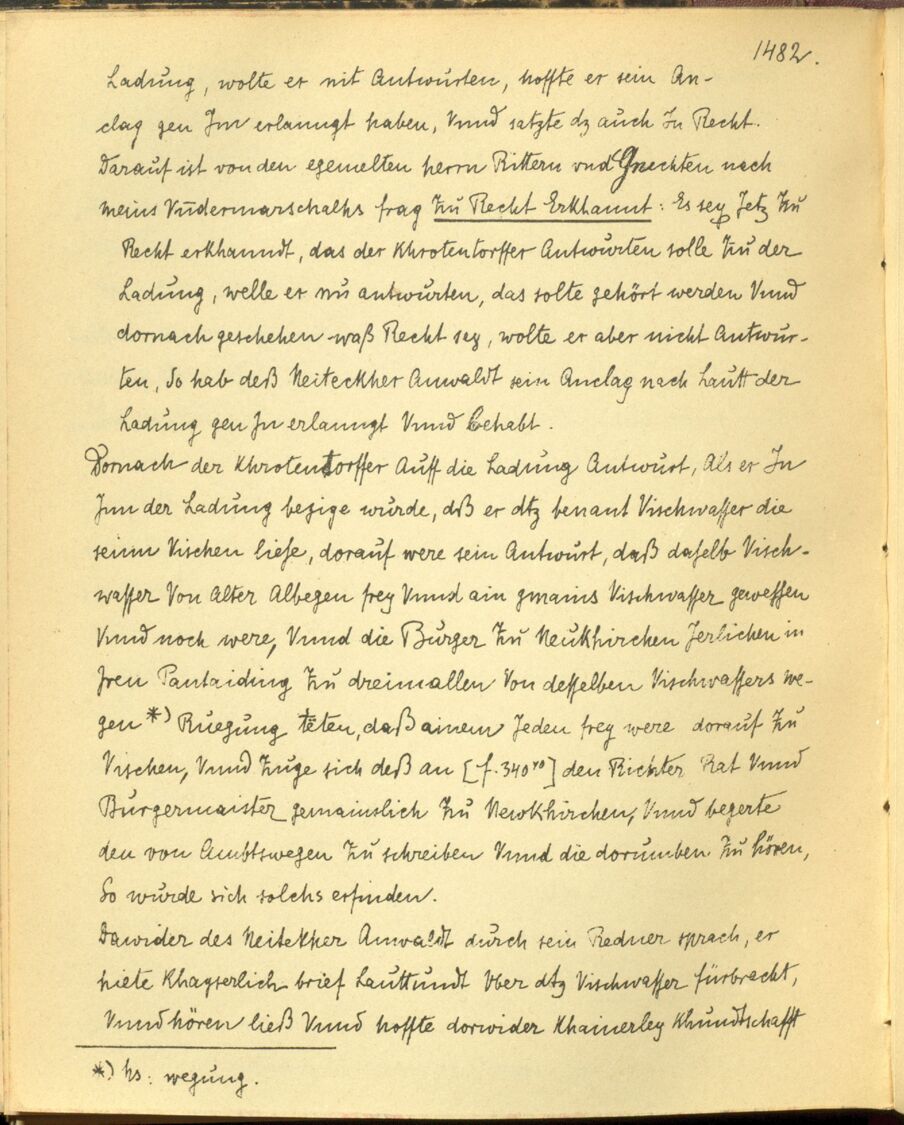 1482.
Ladung, wolte er nit Antwurten, hoffte er sein An-
clag gen Im erlanngt haben, Vnnd satzte dz auch In Recht.
Darauf ist von den egemelten herrn Rittern vnd Gnechten nach
meins Vndermarschalhs frag Zu Recht Erkhannt: Es sey Jetz Zu
Recht erkhanndt, das der Khrotentorffer Antwurten solle Zu der
Ladung, welle er nu antwurten, das solte gehört werden Vnnd
dornach geschehen waß Recht sey, wolte er aber nicht Antwur-
ten, So hab deß Neiteckher Anwaldt sein Anclag nach Lautt der
Ladung gen In erlanngt Vnnd behabt.
Dornach der Khrotentorffer Auff die Ladung Antwurt, Als er In
Inn der Ladung bezige wurde, dß er dtz benant Vischwasser die
seinn Vischen liese, dorauf were sein Antwurt, daß daselb Visch-
wasser Von Alter Albegen frey Vnnd ain gmains Vischwasser gewessen
Vnnd noch were, Vnnd die Burger Zu Neukhirchen Jerlichen in
Iren Pantaiding Zu dreimallen Von desselben Vischwassers we-
gen *) Ruegung téten, daß ainem Jeden frey were dorauf Zu
Vischen, Vnnd Zuge sich deß an [f. 340ro] den Richter Rat Vnnd
Burgermaister gemainslich Zu Newkhirchen, Vnnd begerte
den von Ambtswegen Zu schreiben Vnnd die dorumben Zu hören,
So wurde sich solchs erfinden.
Dawider des Neitekher Anwaldt durch sein Redner sprach, er
hiete Khayserlich brief Lauttundt Vber dtz Vischwasser fürbracht,
Vnnd hören ließ Vnnd hoffte dorwider Khainerley Khundtschafft
*) hs: wegung.